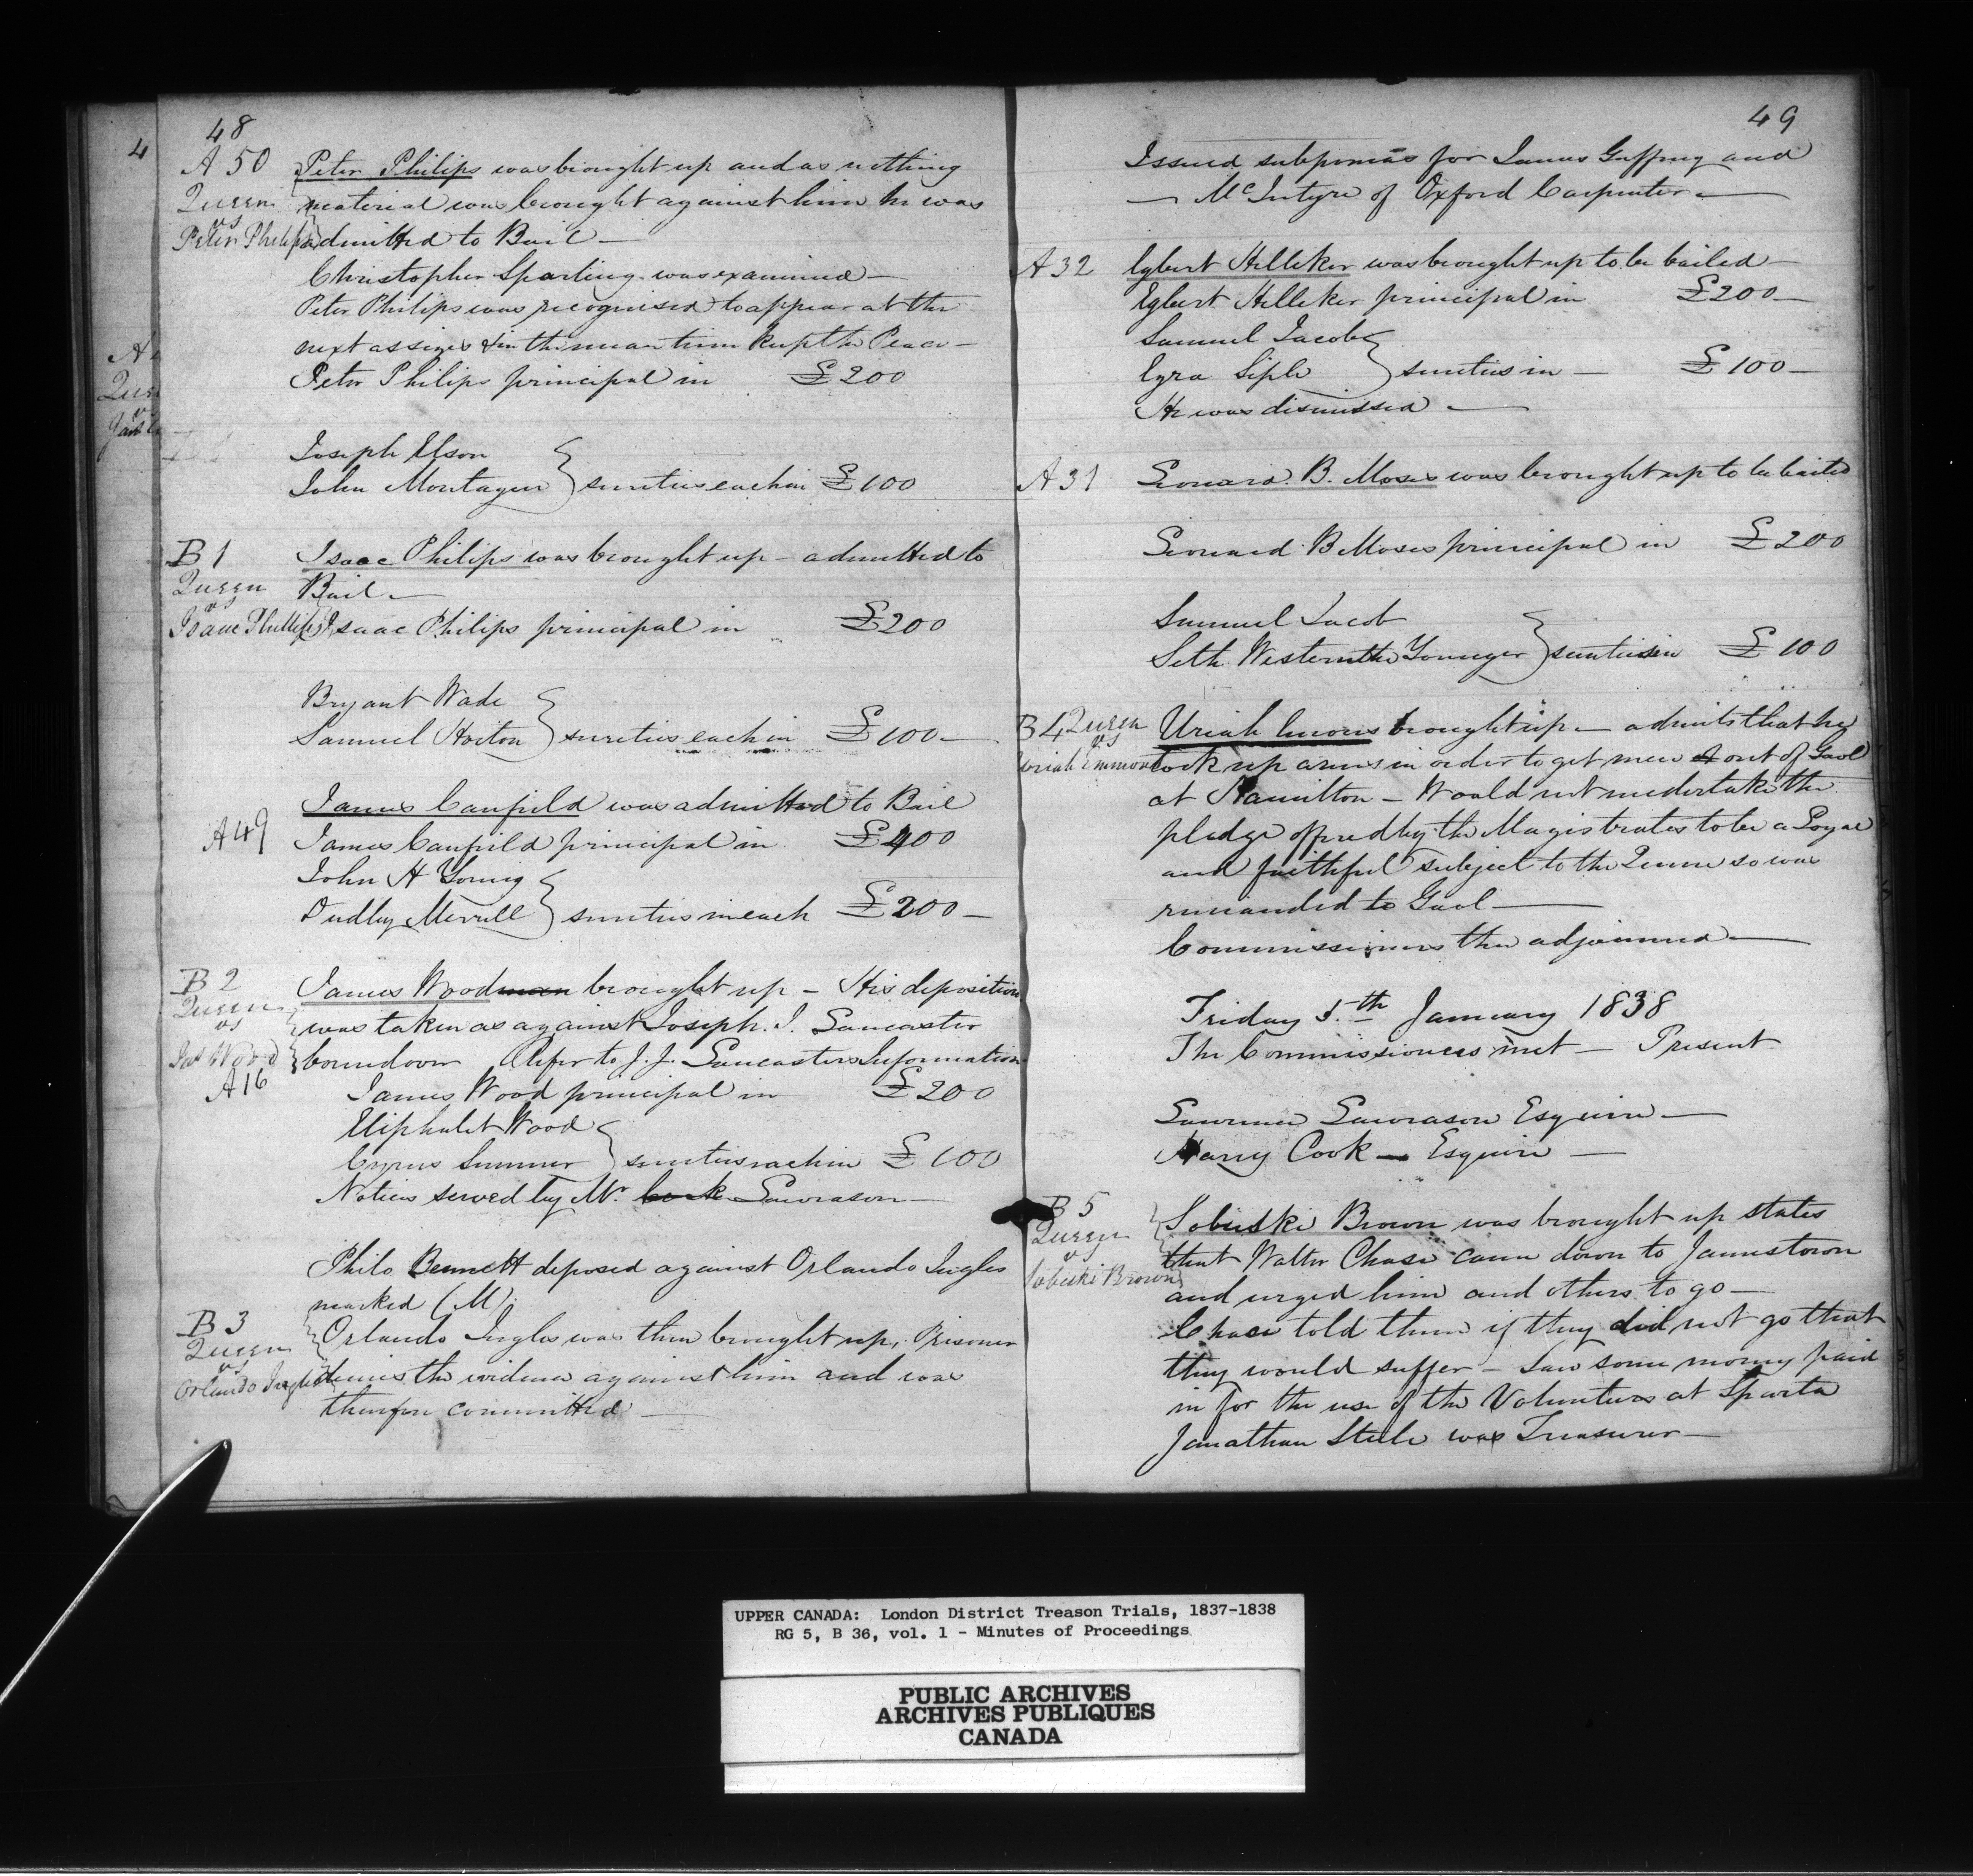 48
A 50 Peter Philips was brought up and as nothing
Queen material was brought against him he was
vs
Peter Philips admitted to Bail —
Christopher Sparling was examined —
Peter Philips was recognised to appear at the
next assizes & in the mean time keep the Peace —
Peter Philips principal in £200
Joseph Elson
John Montague } sureties each in £100
B 1 Isaac Philips was brought up — admitted to
Queen Bail —
vs
Isaac Phillips Isaac Philips principal in £200
Bryant Wade
Samuel Horton } sureties each in £100 —
James Canfield was admitted to Bail
A 49 James Canfield principal in £400
John H Young
Dudley Merrill } sureties in each £200 —
B 2 James Woodman brought up — His deposition
Queen
vs was taken as against Joseph. J. Lancaster
Jas Wood bound over Refer to J. J. Lancasters Information
A 16 James Wood principal in £200
Eliphalet Wood
Cyrus Sumner } sureties each in £100
Notices served by Mr. Cook Lawrason —
Philo Bennett deposed against Orlando Ingles
marked (M)
B 3 Orlando Ingles was then brought up, Prisoner
Queen
vs
Orlando Ingles denies the evidence against him and was
therefore committed —
4
A
Quee
vs
49
Issued subpoenas for James Guffney and
— McIntyre of Oxford Carpenter —
A 32 Egbert Hilliker was brought up to be bailed —
Egbert Hilliker principal in £200 —
Samuel Jacobs
Ezra Siple } sureties in — £100 —
He was dismissed —
A 31 Leonard. B. Moses was brought up to be bailed
Leonard B Moses principal in £200
Samuel Jacob
Seth Western the Younger } sureties in £100
B 4 Queen Uriah Emons brought up — admits that he
vs
Uriah Emmons took up arms in order to get men out of Gaol
at Hamilton — Would not undertake the
pledge offered by the Magistrates to be a Loyal
and faithful subject to the Queen so was
remanded to Gaol —
Commissioners then adjourned —
Friday 5th January 1838
The Commissioners met — Present
Lawrence Lawrason Esquire —
Harry Cook — Esquire —
B 5 Sobieski Brown was brought up states
Queen
vs that Walter Chase came down to Jamestown
Sobieski Brown and urged him and others to go —
Chase told them if they did not go that
they would suffer — Saw some money paid
in for the use of the Volunteers at Sparta
Jonathan Steele was Treasurer —
UPPER CANADA: London District Treason Trials, 1837-1838
RG 5, B 36, vol. 1 - Minutes of Proceedings
PUBLIC ARCHIVES
ARCHIVES PUBLIQUES
CANADA